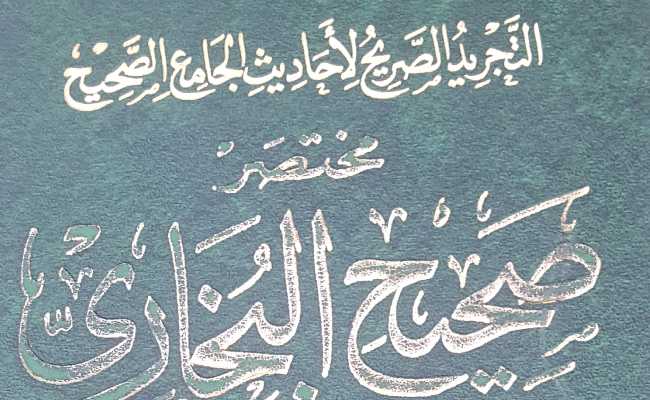 التَّجْرِيدُ الصَّرِيحُ لِأَحَادِيثِ الجَامِعِ الصَّحِيحِ
مختصَر
صَحِيحِ البُخَارِيِّ